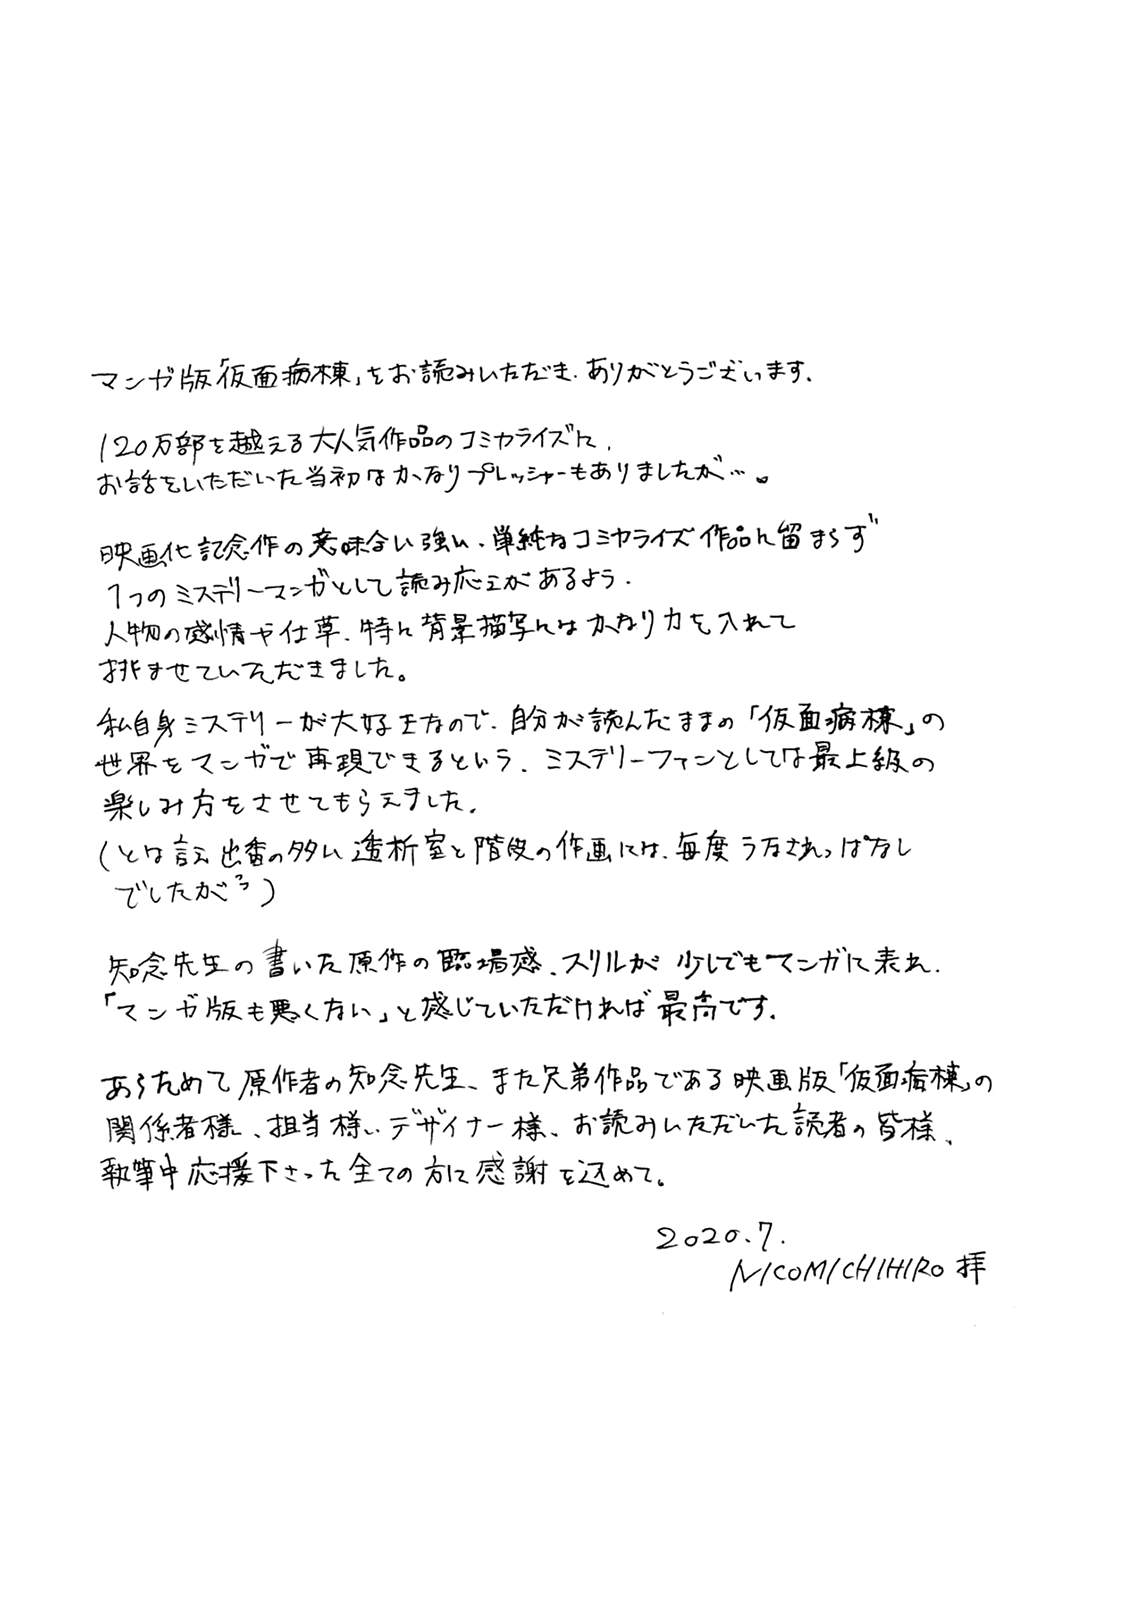 マンガ版「仮面病棟」をお読みいただき、ありがとうございます。
120万部を越える大人気作品のコミカライズに、
お話をいただいた当初はかなりプレッシャーもありましたが…。
映画化記念作の意味合い強い、単純なコミカライズ作品に留まらず
1つのミステリーマンガとして読み応えがあるよう、
人物の感情や仕草、特に背景描写にはかなり力を入れて
挑ませていただきました。
私自身ミステリーが大好きなので、自分が読んだままの「仮面病棟」の
世界をマンガで再現できるという、ミステリーファンとしては最上級の
楽しみ方をさせてもらえました。
(とは言え出番の多い透析室と階段の作画には、毎度うなされっぱなし
でしたが)
知念先生の書いた原作の臨場感、スリルが少しでもマンガに表れ、
「マンガ版も悪くない」と感じていただければ最高です。
あらためて原作者の知念先生、また兄弟作品である映画版「仮面病棟」の
関係者様、担当様、デザイナー様、お読みいただいた読者の皆様、
執筆中応援下さった全ての方に感謝を込めて。
2020.7.
NICOMICHIHIRO 拝